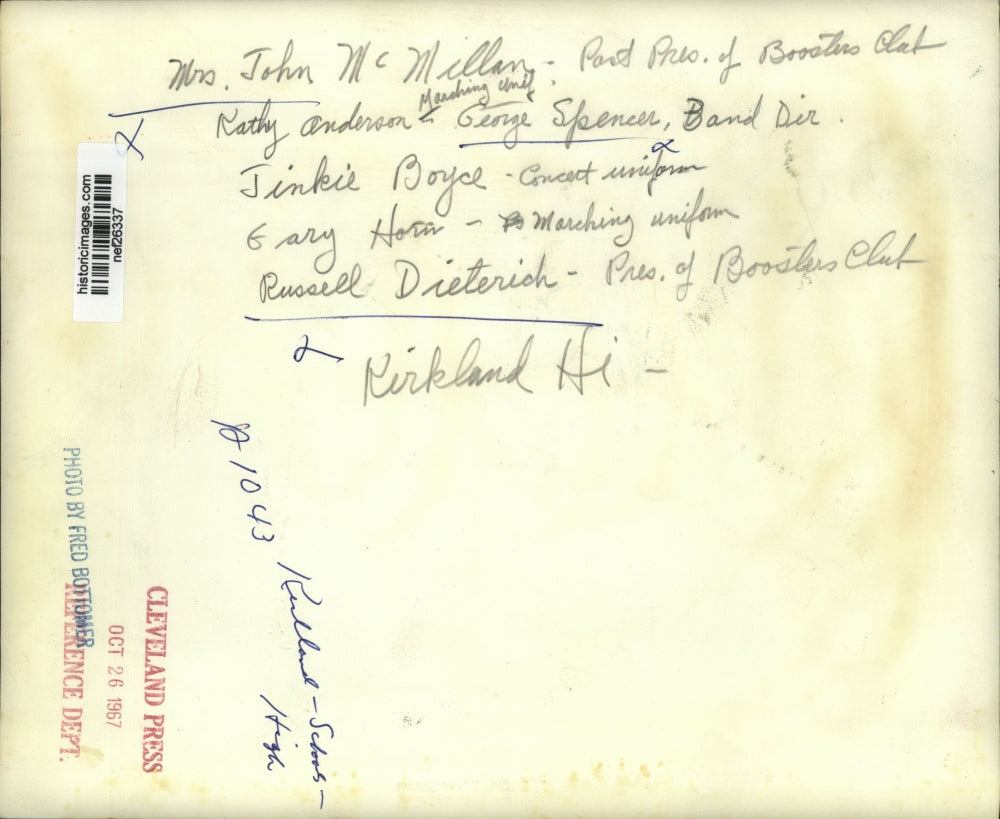 Mrs. John Mc Millan - Past Pres. of Boosters Club
Marching Unif.
Kathy Anderson - George Spencer, Band Dir.
Jinkie Boyce - Concert uniform
Gary Horn - Marching uniform
Russell Dieterich - Pres. of Boosters Club
Kirkland Hi -
historicimages.com
nef26337
A 1043
Kirkland - Schools -
High
PHOTO BY FRED BOTTOMER
REFERENCE DEPT.
OCT 26 1967
CLEVELAND PRESS